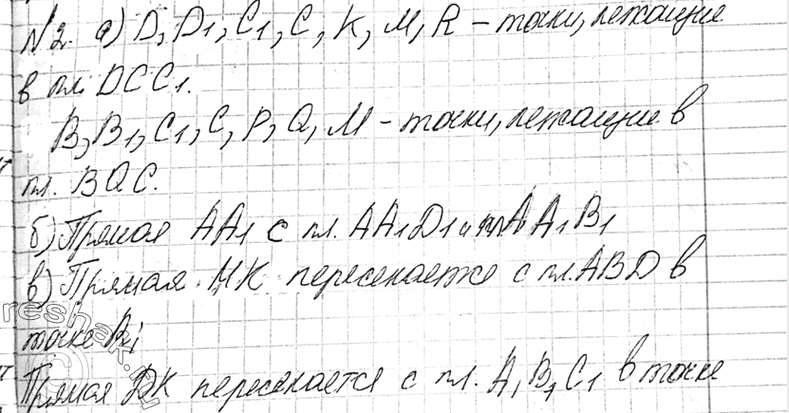 №2. а) D, D1, C1, C, K, M, R – точки, лежащие
в пл. DCC1.
B, B1, C1, C, P, Q, M – точки, лежащие в
пл. BQC.
б) Прямая AA1 с пл. AA1D1 и пл AA1B1
в) Прямая MK пересекается с пл. ABD в
точке R;
Прямая DK пересекается с пл. A1B1C1 в точке
reshak.ru